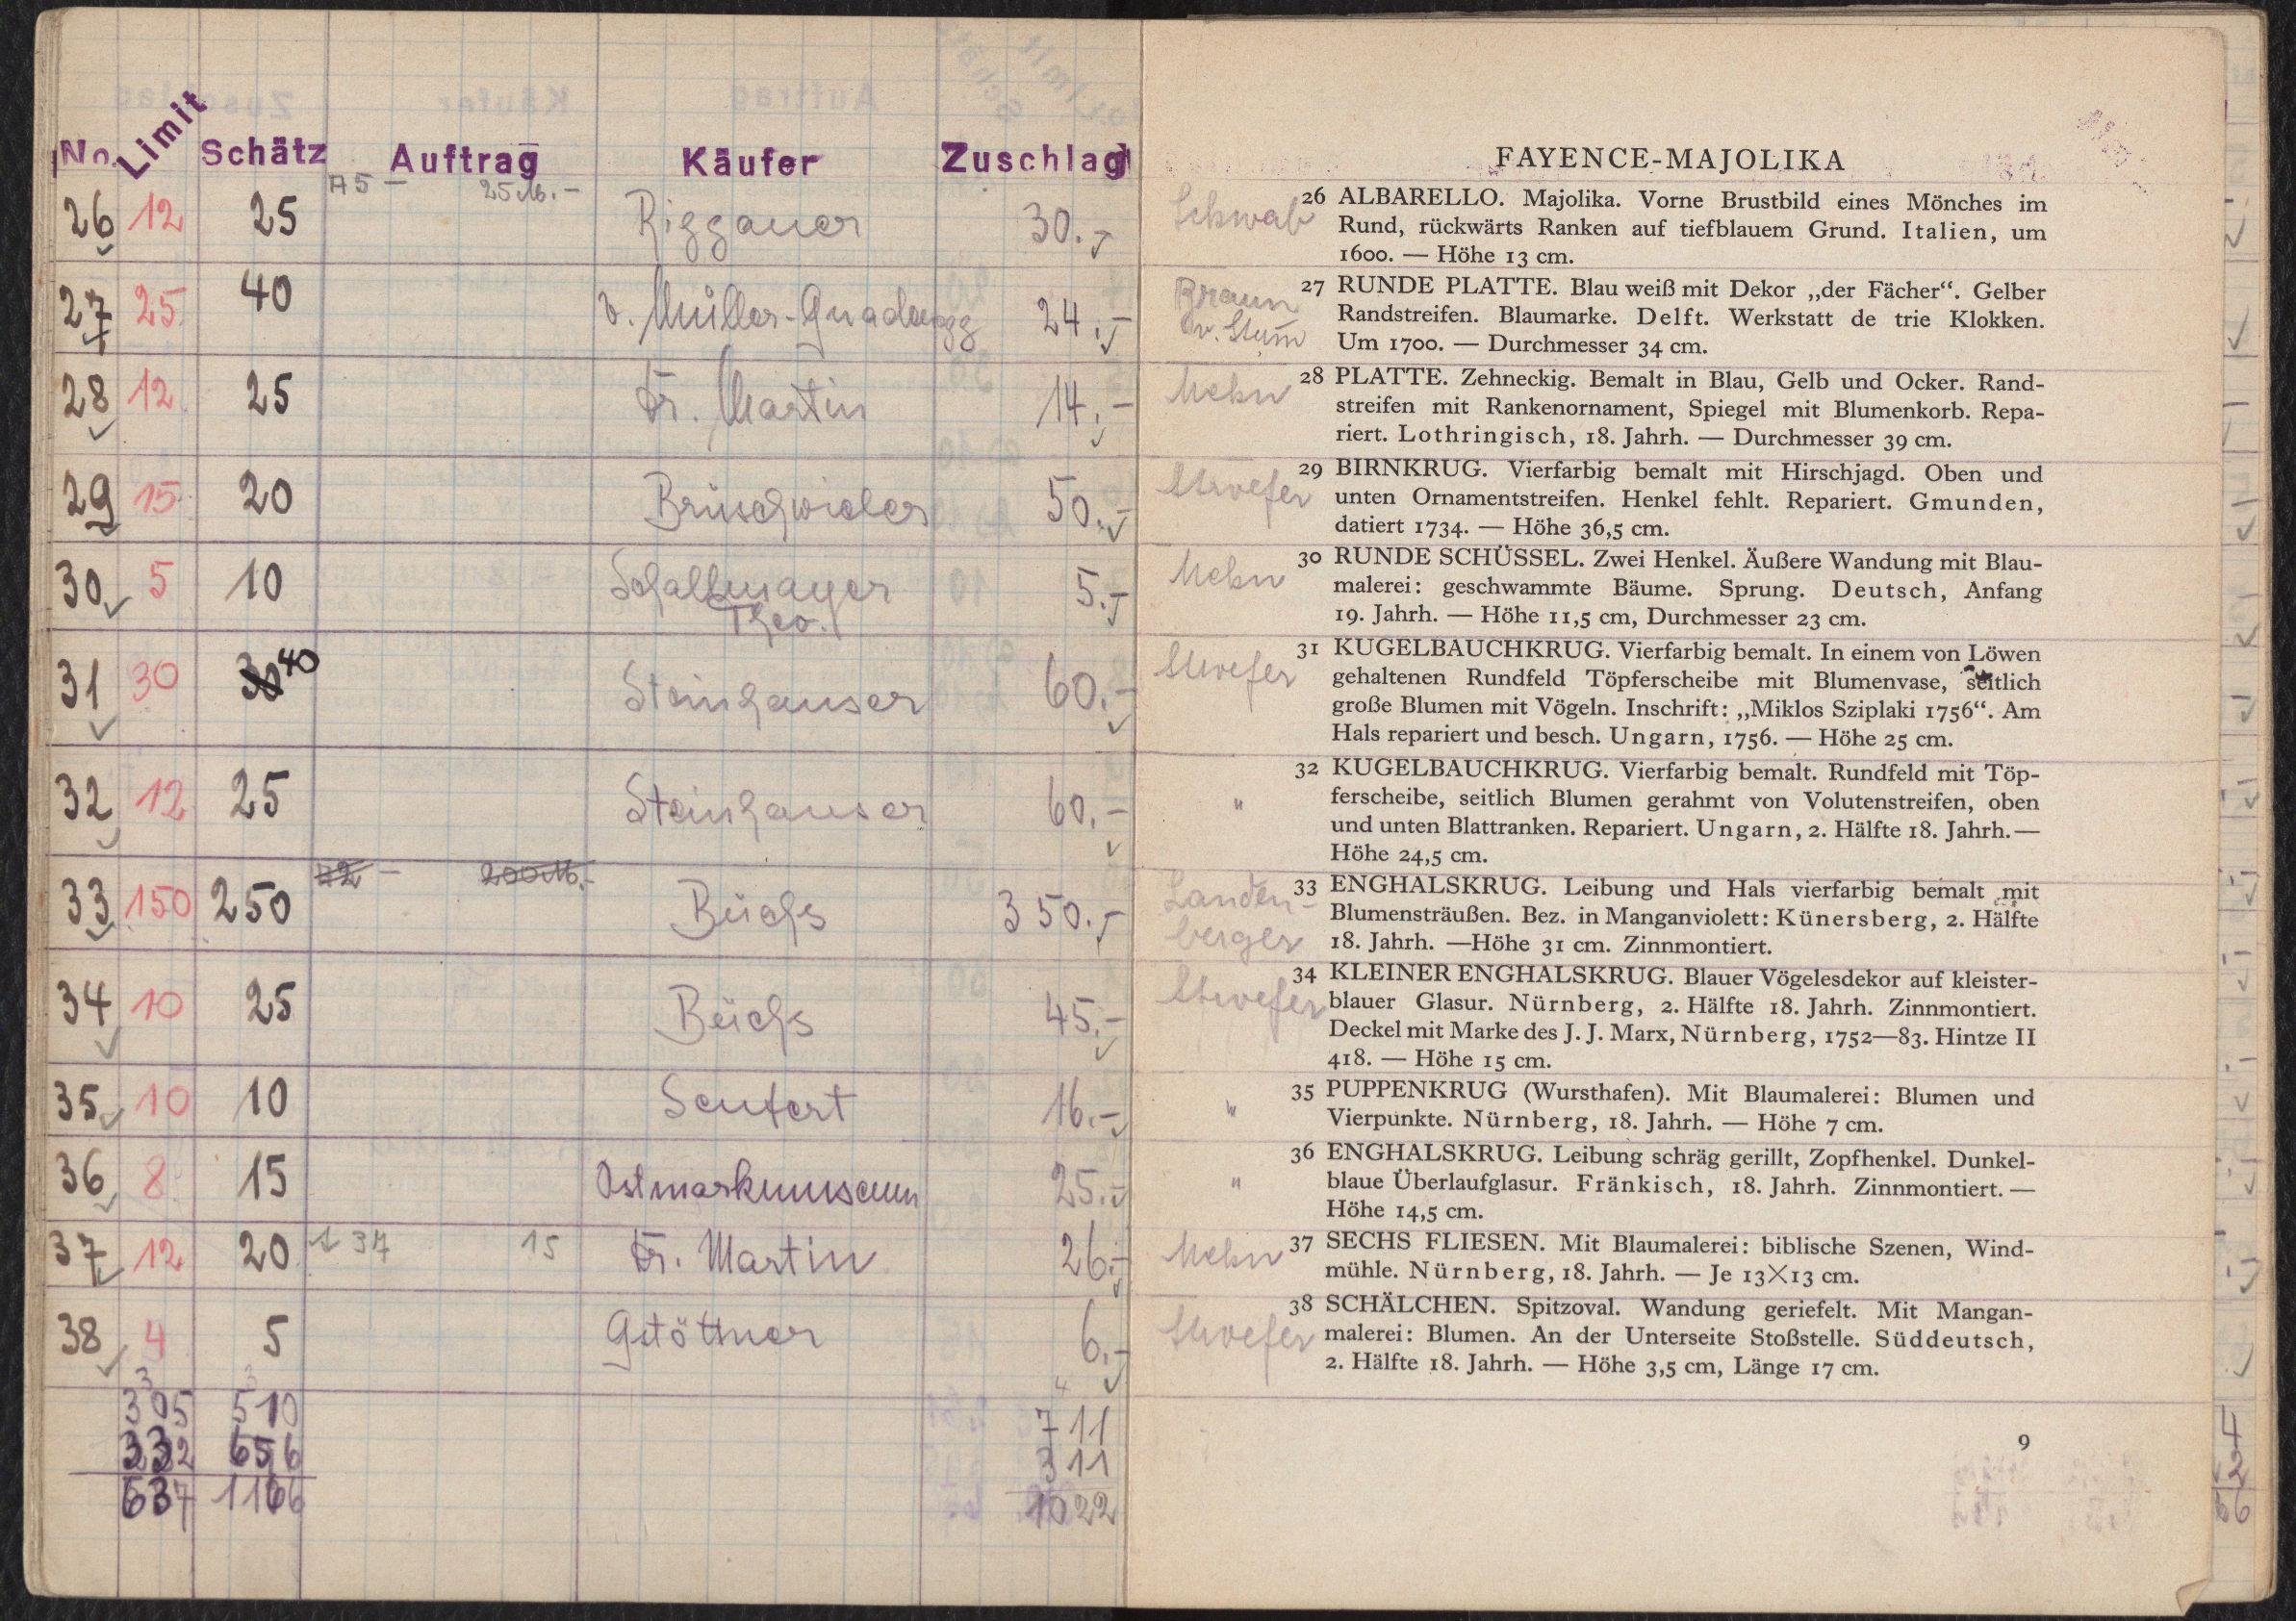 No. Limit Schätz Auftrag Käufer Zuschlag
A5 – 25 M. –
26 12 25 Riggauer 30.-
27 25 40 v. Müller-Gnadenegg 24.-
28 12 25 Dr. Martin 14.-
29 15 20 Brüschwieler 50.-
30 5 10 Schallmayer 5.-
Theo.
31 30 30 40 Steinhauser 60.-
32 12 25 Steinhauser 60.-
200 M.-
33 150 250 Büchs 350.-
34 10 25 Büchs 45.-
35 10 10 Seufert 16.-
36 8 15 Ostmarkmuseum 25.-
37 12 20 A 37 15 Dr. Martin 26.-
38 4 5 Gstöttner 6.-
3 3 4
305 510 711
332 656 311
637 1166 1022
FAYENCE-MAJOLIKA
Schwab
26 ALBARELLO. Majolika. Vorne Brustbild eines Mönches im
Rund, rückwärts Ranken auf tiefblauem Grund. Italien, um
1600. — Höhe 13 cm.
Braun
v. Stum̄
27 RUNDE PLATTE. Blau weiß mit Dekor „der Fächer“. Gelber
Randstreifen. Blaumarke. Delft. Werkstatt de trie Klokken.
Um 1700. — Durchmesser 34 cm.
Mehn
28 PLATTE. Zehneckig. Bemalt in Blau, Gelb und Ocker. Rand-
streifen mit Rankenornament, Spiegel mit Blumenkorb. Repa-
riert. Lothringisch, 18. Jahrh. — Durchmesser 39 cm.
Stroefer
29 BIRNKRUG. Vierfarbig bemalt mit Hirschjagd. Oben und
unten Ornamentstreifen. Henkel fehlt. Repariert. Gmunden,
datiert 1734. — Höhe 36,5 cm.
Mehn
30 RUNDE SCHÜSSEL. Zwei Henkel. Äußere Wandung mit Blau-
malerei: geschwammte Bäume. Sprung. Deutsch, Anfang
19. Jahrh. — Höhe 11,5 cm, Durchmesser 23 cm.
Stroefer
31 KUGELBAUCHKRUG. Vierfarbig bemalt. In einem von Löwen
gehaltenen Rundfeld Töpferscheibe mit Blumenvase, seitlich
große Blumen mit Vögeln. Inschrift: „Miklos Sziplaki 1756“. Am
Hals repariert und besch. Ungarn, 1756. — Höhe 25 cm.
"
32 KUGELBAUCHKRUG. Vierfarbig bemalt. Rundfeld mit Töp-
ferscheibe, seitlich Blumen gerahmt von Volutenstreifen, oben
und unten Blattranken. Repariert. Ungarn, 2. Hälfte 18. Jahrh. —
Höhe 24,5 cm.
Landen-
berger
33 ENGHALSKRUG. Leibung und Hals vierfarbig bemalt mit
Blumensträußen. Bez. in Manganviolett: Künersberg, 2. Hälfte
18. Jahrh. —Höhe 31 cm. Zinnmontiert.
Stroefer
34 KLEINER ENGHALSKRUG. Blauer Vögelesdekor auf kleister-
blauer Glasur. Nürnberg, 2. Hälfte 18. Jahrh. Zinnmontiert.
Deckel mit Marke des J. J. Marx, Nürnberg, 1752—83. Hintze II
418. — Höhe 15 cm.
"
35 PUPPENKRUG (Wursthafen). Mit Blaumalerei: Blumen und
Vierpunkte. Nürnberg, 18. Jahrh. — Höhe 7 cm.
"
36 ENGHALSKRUG. Leibung schräg gerillt, Zopfhenkel. Dunkel-
blaue Überlaufglasur. Fränkisch, 18. Jahrh. Zinnmontiert. —
Höhe 14,5 cm.
Mehn
37 SECHS FLIESEN. Mit Blaumalerei: biblische Szenen, Wind-
mühle. Nürnberg, 18. Jahrh. — Je 13×13 cm.
Stroefer
38 SCHÄLCHEN. Spitzoval. Wandung geriefelt. Mit Mangan-
malerei: Blumen. An der Unterseite Stoßstelle. Süddeutsch,
2. Hälfte 18. Jahrh. — Höhe 3,5 cm, Länge 17 cm.
9